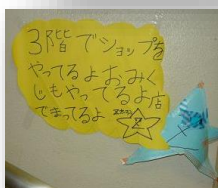 3階でショップを
やってるよおみく
じもやってるよ店
できてるよ
2